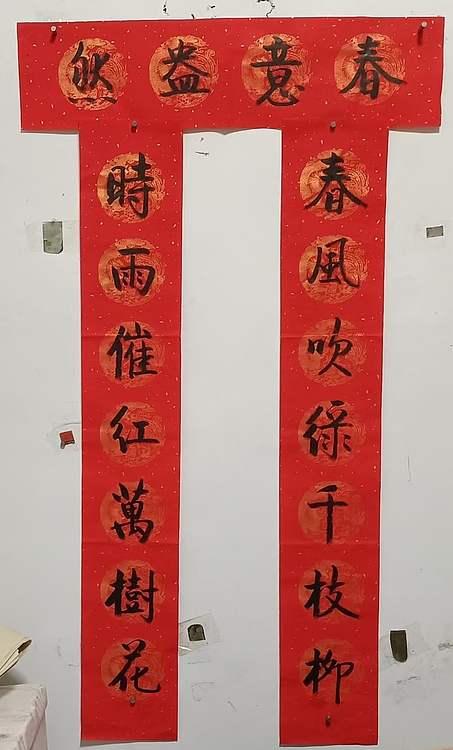 春意盎然
春風吹綠千枝柳
時雨催红萬樹花